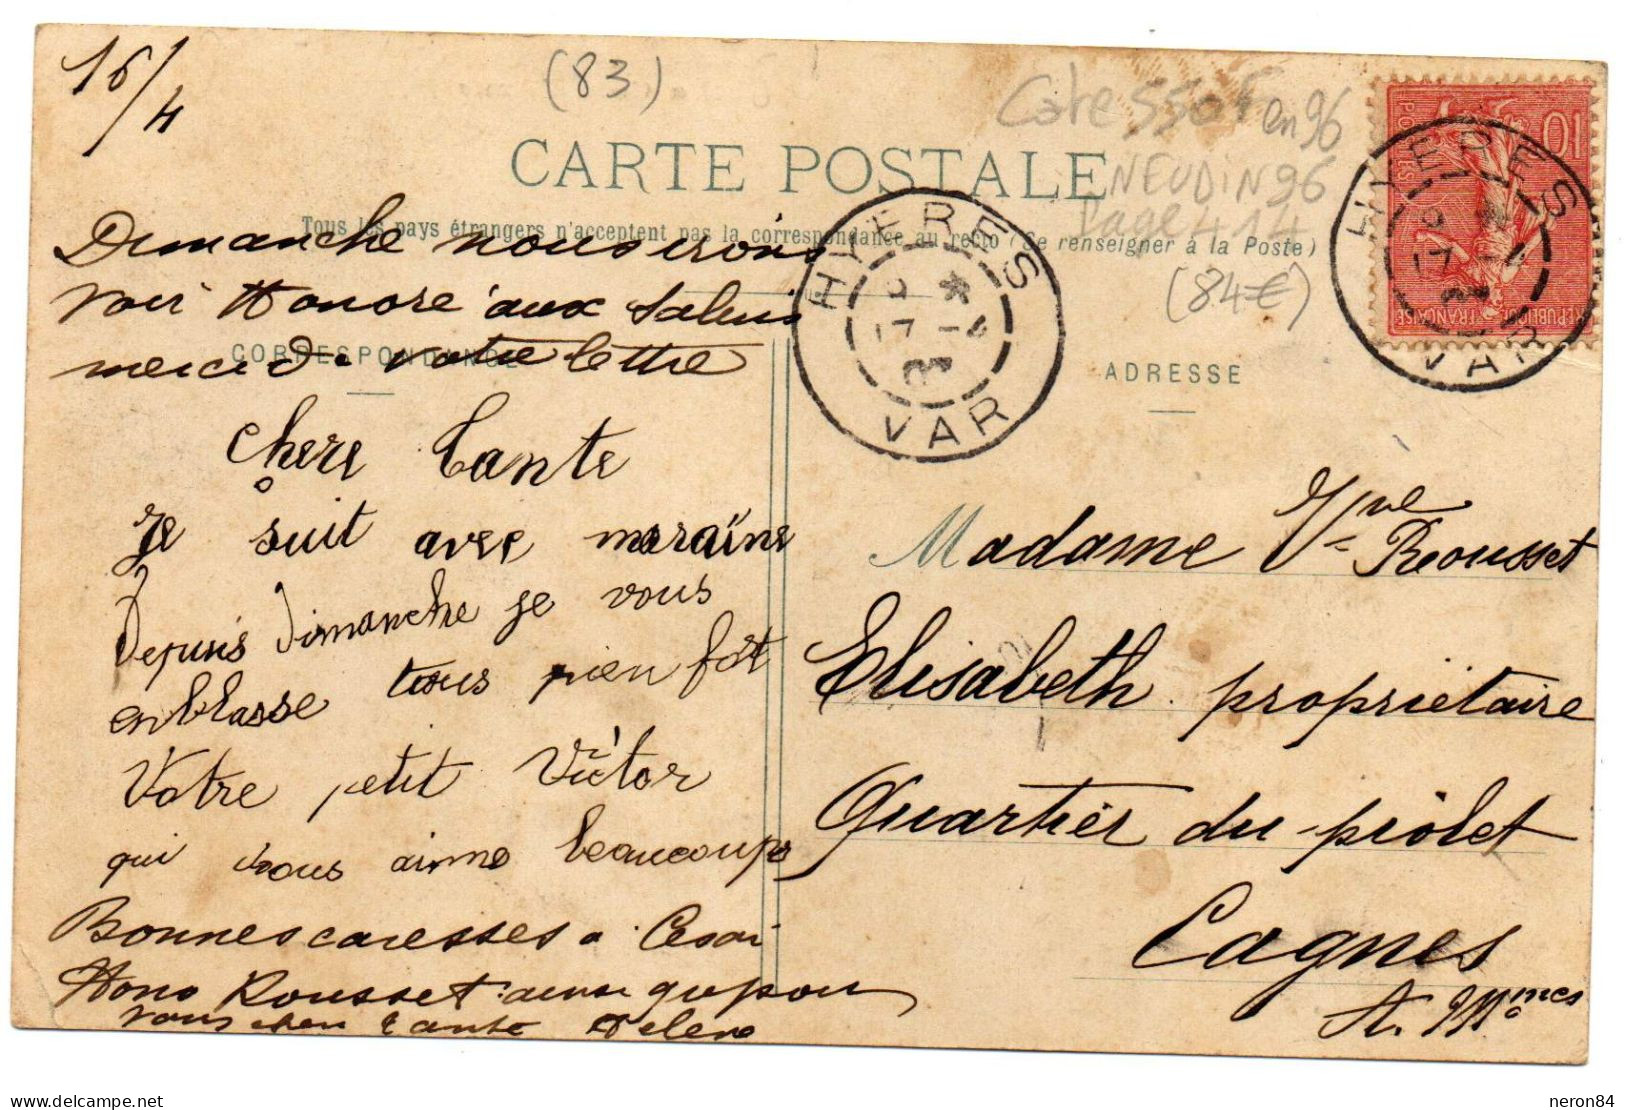 16/4
(83)
Cote 550F en 96
NEUDIN 96
Page 414
(84€)
CARTE POSTALE
Tous les pays étrangers n'acceptent pas la correspondance au recto (Se renseigner à la Poste)
CORRESPONDANCE
ADRESSE
HYERES
VAR
HYERES
VAR
10
POSTES
REPUBLIQUE FRANÇAISE
Dimanche nous irons
voir Honoré aux Salins
merci de votre lettre
Chere Tante
Je suit avec maraine
Depuis Dimanche je vous
enblasse tous bien fort
Votre petit Victor
qui vous aime beaucoup
Bonnes caresses a Cesar
Hono Rousset ainsi que pour
vous chere tante
Madame Vve Rousset
Elisabeth propriétaire
Quartier du piolet
Cagnes
A. Mmes
delcampe.net
neron84